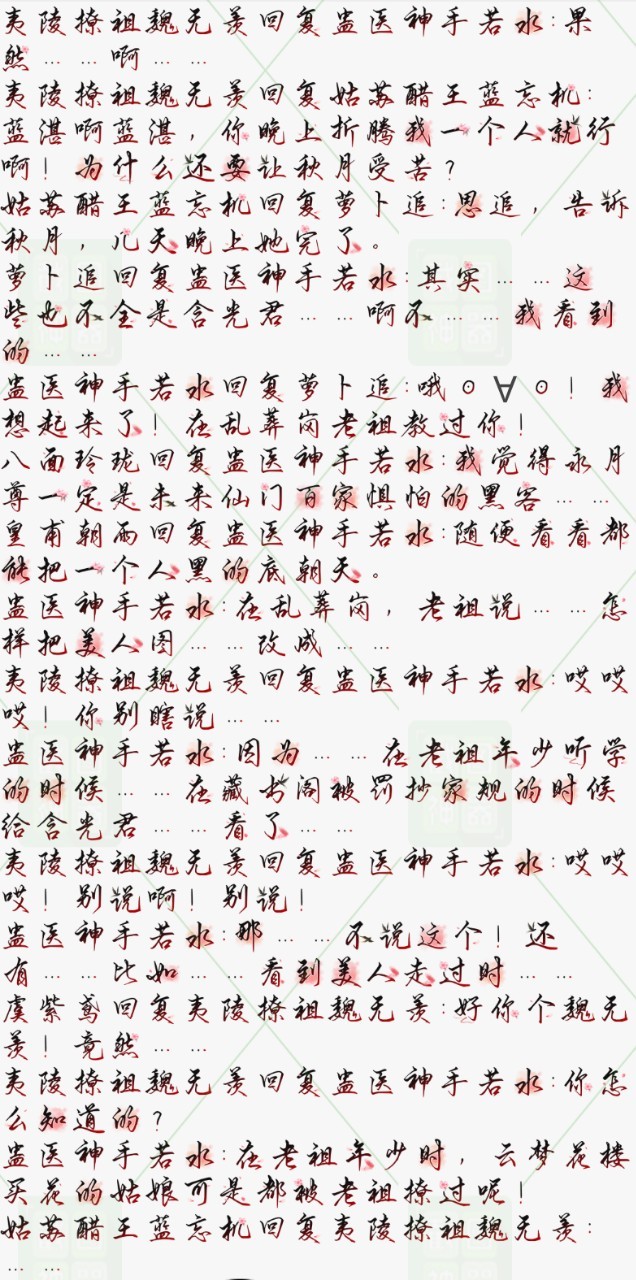 夷陵撩祖魏无羡回复蛊医神手若水:果
然……啊……
夷陵撩祖魏无羡回复姑苏醋王蓝忘机:
蓝湛啊蓝湛，你晚上折腾我一个人就行
啊！为什么还要让秋月受苦？
姑苏醋王蓝忘机回复萝卜追:思追，告诉
秋月，几天晚上她完了。
萝卜追回复蛊医神手若水:其实……这
些也不全是含光君……啊不……我看到
的……
蛊医神手若水回复萝卜追:哦⊙∀⊙！我
想起来了！在乱葬岗老祖教过你！
八面玲珑回复蛊医神手若水:我觉得永月
尊一定是未来仙门百家惧怕的黑客……
皇甫朝雨回复蛊医神手若水:随便看看都
能把一个人黑的底朝天。
蛊医神手若水:在乱葬岗，老祖说……怎
样把美人图……改成……
夷陵撩祖魏无羡回复蛊医神手若水:哎哎
哎！你别瞎说……
蛊医神手若水:因为……在老祖年少听学
的时候……在藏书阁被罚抄家规的时候
给含光君……看了……
夷陵撩祖魏无羡回复蛊医神手若水:哎哎
哎！别说啊！别说！
蛊医神手若水:那……不说这个！还
有……比如……看到美人走过时……
虞紫鸢回复夷陵撩祖魏无羡:好你个魏无
羡！竟然……
夷陵撩祖魏无羡回复蛊医神手若水:你怎
么知道的？
蛊医神手若水:在老祖年少时，云梦花楼
买花的姑娘可是都被老祖撩过呢！
姑苏醋王蓝忘机回复夷陵撩祖魏无羡:
……